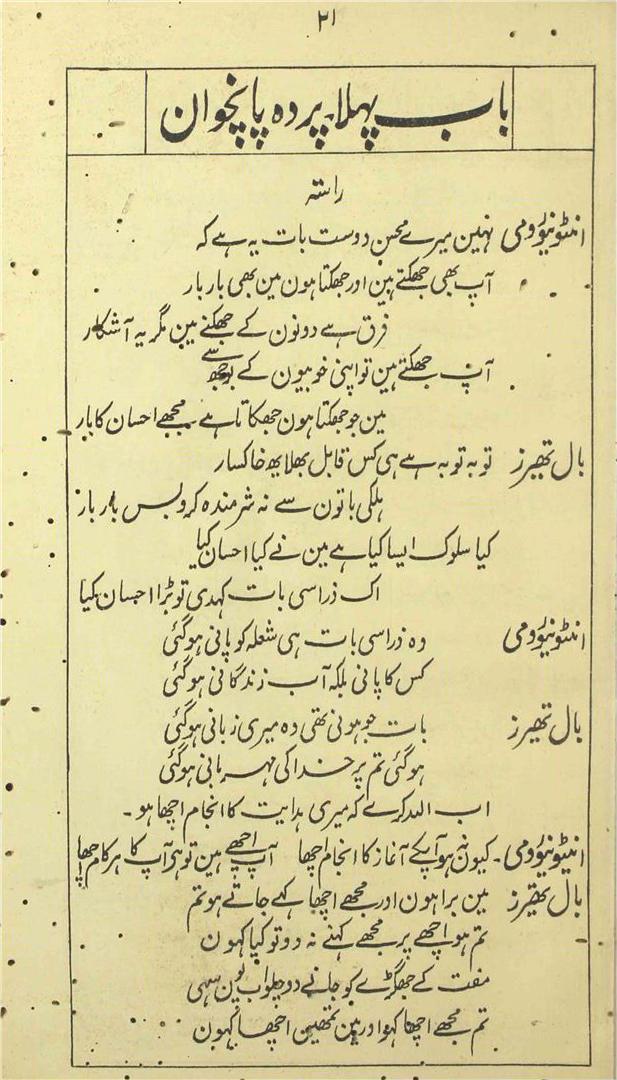 ۲۱
باب پہلا۔ پردہ پانچوان
راستہ
انٹونیؤومی نہین میرے محسن دوست بات یہ ہے کہ
آپ بھی جھکتے ہین اور جھکتا ہون مین بھی بار بار
فرق ہے دونون کے جھکنے مین مگر یہ آشکار
آپ جھکتے ہین تو اپنی خوبیون کے بوجھ سے
مین جو جھکتا ہون جھکاتا ہے مجھے احسان کا بار
بال تھیرز توبہ توبہ ہے ہی کس قابل بھلا یھ خاکسار
ہلکی باتون سے نہ شرمندہ کرو بس بار بار
کیا سلوک ایسا کیا ہے مین نے کیا احسان کیا
اک ذرا سی بات کہدی تو بڑا احسان کیا
انٹونیؤومی وہ ذرا سی بات ہی شعلہ کو پانی ہوگئی
کس کا پانی بلکہ آب زندگانی ہوگئی
بال تھیرز بات جو ہونی تھی وہ میری زبانی ہوگئی
ہوگئی تم پر خدا کی مہربانی ہوگئی
اب اللہ کرے کہ میری ہدایت کا انجام اچھا ہو۔
انیٹونیؤومی۔ کیون نہ ہو آپکے آغاز کا انجام اچھا آپ اچھے ہین تو ہی آپ کا ہر کام اچھا
بال تھیرز مین برا ہون اور مجھے اچھا کہے جاتے ہو تم
تم ہو اچھے پر مجھے کہنے نہ دو تو کیا کہون
مفت کے جھگڑے کو جانے دو چلو اب یون سہی
تم مجھے اچھا کہو اور مین تمھین اچھا کہون